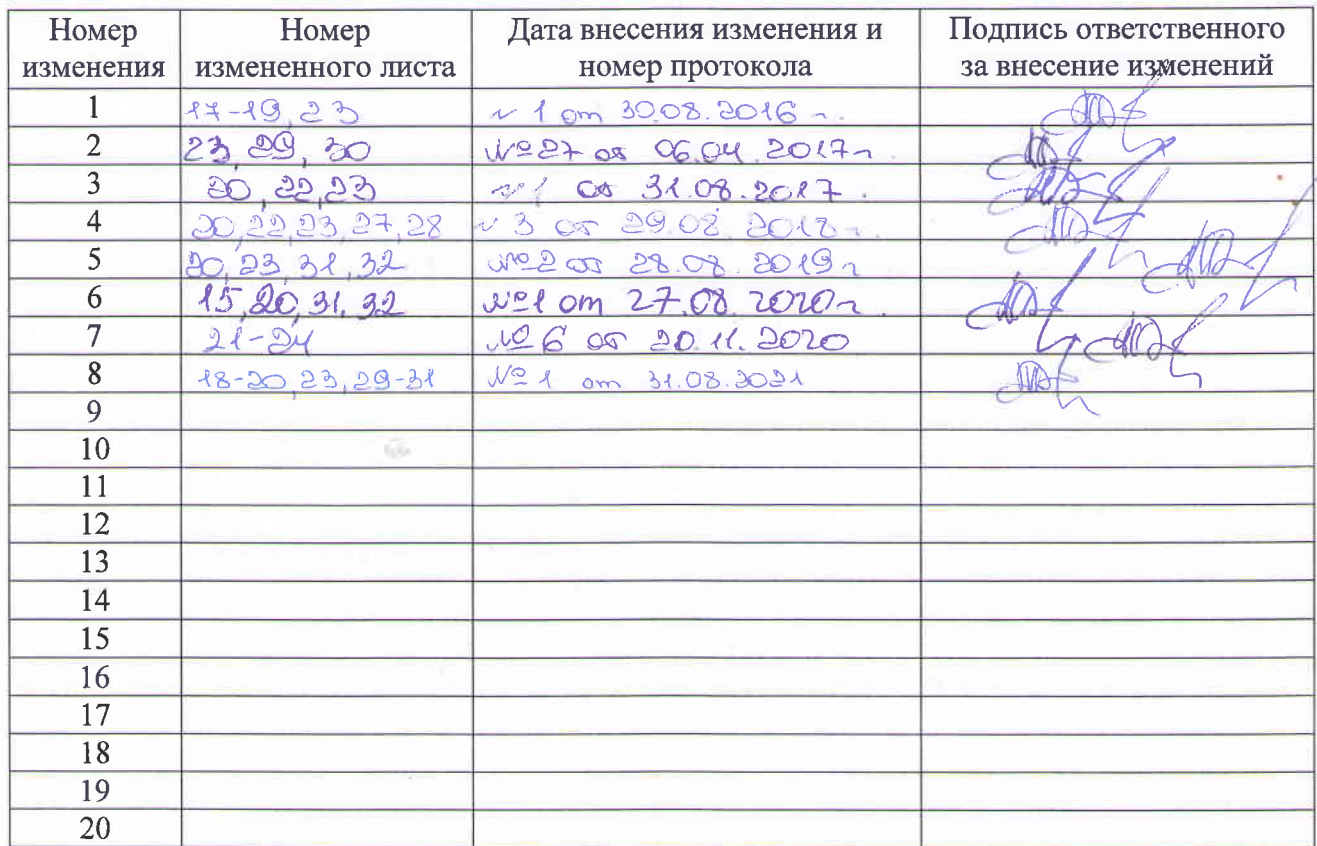 Номер изменения | Номер измененного листа | Дата внесения изменения и номер протокола | Подпись ответственного за внесение изменений
1 | 17-19, 23 | № 1 от 30.08.2016 г.
2 | 23, 29, 30 | №27 от 06.04.2017г
3 | 20, 22, 23 | №1 от 31.08.2017.
4 | 20, 22, 23, 27, 28 | № 3 от 29.08.2018 г.
5 | 20, 23, 31, 32 | №2 от 28.08.2019 г
6 | 15, 20, 31, 32 | №1 от 27.08.2020г.
7 | 21-24 | №6 от 20.11.2020
8 | 18-20, 23, 29-31 | № 1 от 31.08.2021
9
10
11
12
13
14
15
16
17
18
19
20